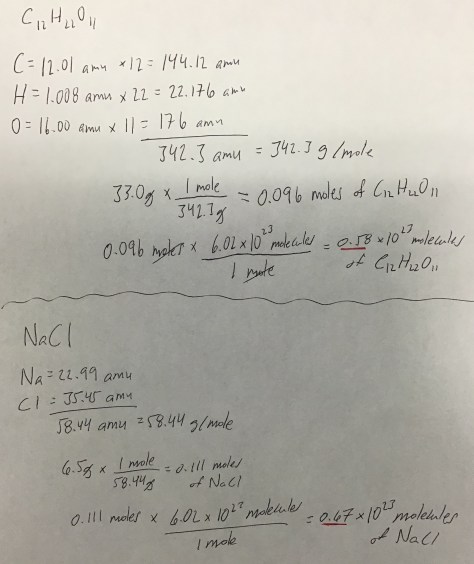 C₁₂H₂₂O₁₁
C = 12.01 amu × 12 = 144.12 amu
H = 1.008 amu × 22 = 22.176 amu
O = 16.00 amu × 11 = 176 amu
342.3 amu = 342.3 g/mole
33.0g × 1 mole / 342.3g = 0.096 moles of C₁₂H₂₂O₁₁
0.096 moles × 6.02 × 10²³ molecules / 1 mole = 0.58 × 10²³ molecules
of C₁₂H₂₂O₁₁
NaCl
Na = 22.99 amu
Cl = 35.45 amu
58.44 amu = 58.44 g/mole
6.5g × 1 mole / 58.44g = 0.111 moles
of NaCl
0.111 moles × 6.02 × 10²³ molecules / 1 mole = 0.67 × 10²³ molecules
of NaCl